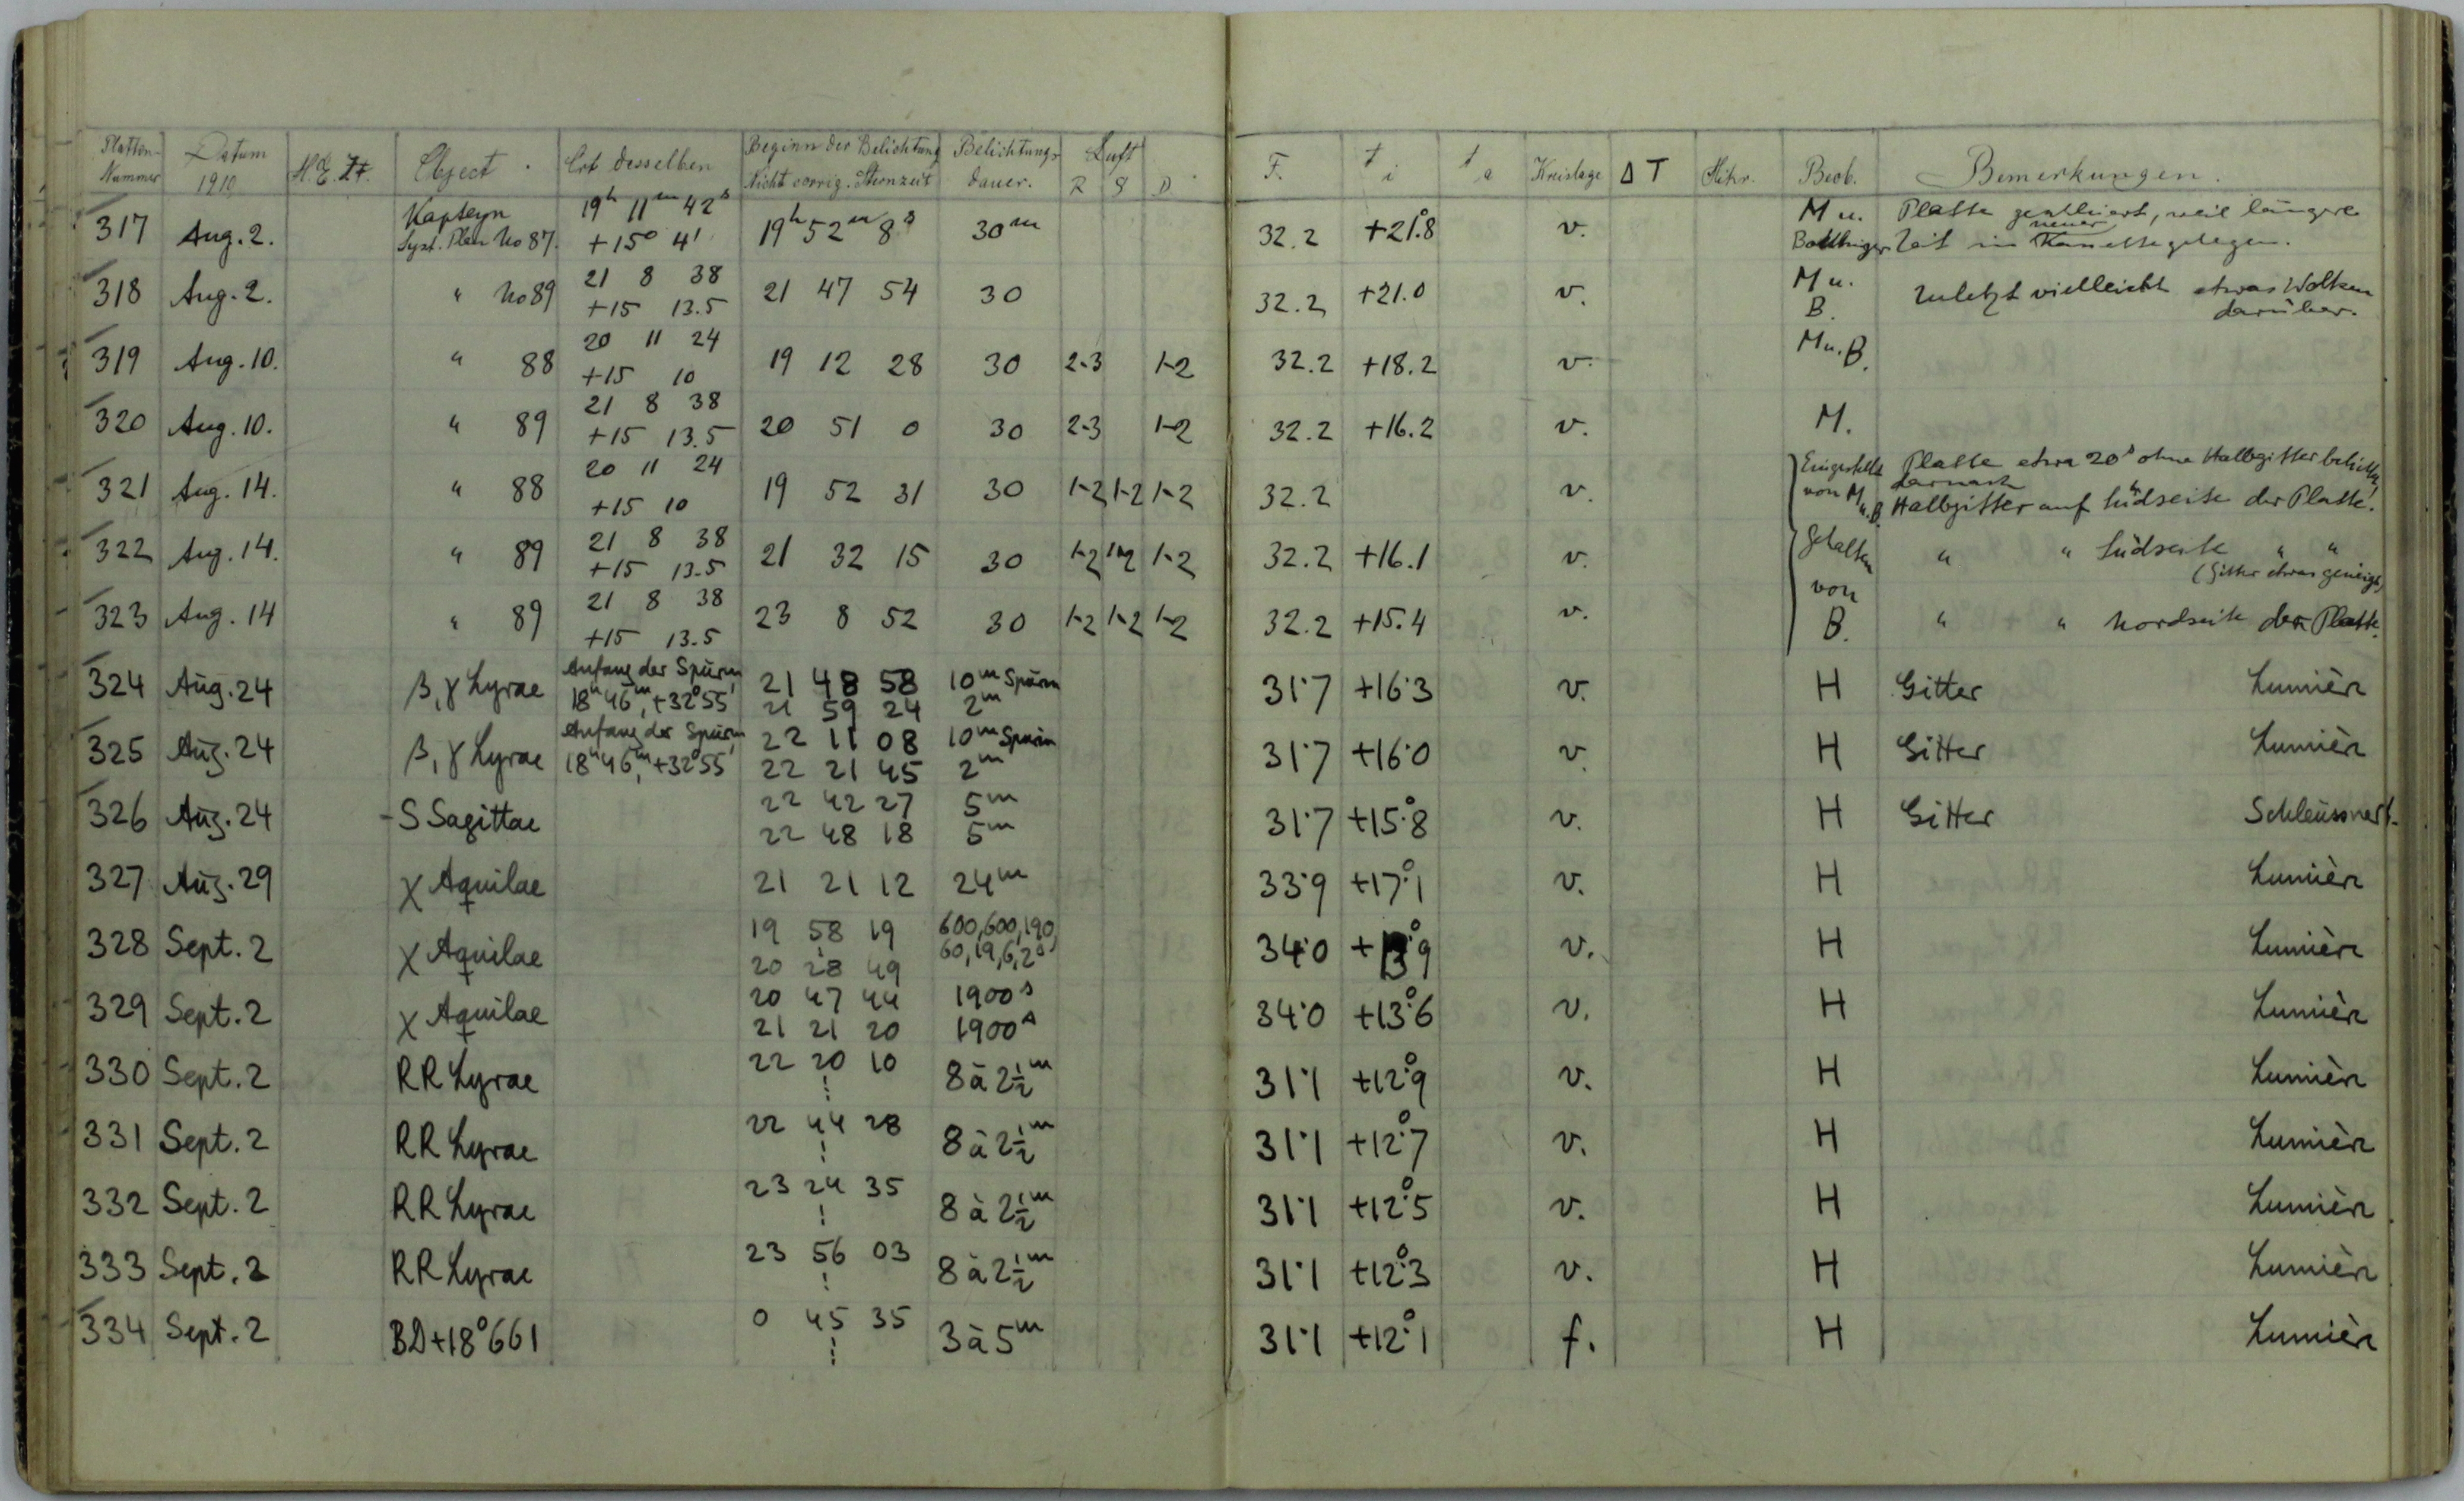 Platten-Nummer Datum 1910 M.E.Zt. Object Ort desselben Beginn der Belichtung Nicht corrig. Sternzeit Belichtungsdauer. Luft R S D F. t i t a Kreislage ΔT Mikr. Beob. Bemerkungen.
317 Aug. 2. Kapteyn Syst. Plan No 87. 19h 11m 42s +15° 4' 19h 52m 8s 30m 32.2 +21.°8 v. M u. Platte, weil längere
Zeit in neuer Kassette gelegen.
318 Aug. 2. " No 89 21 8 38 +15 13.5 21 47 54 30 32.2 +21.0 v. M u. B. Zuletzt vielleicht etwas Wolken
darüber.
319 Aug. 10. " 88 20 11 24 +15 10 19 12 28 30 2-3 1-2 32.2 +18.2 v. M u. B.
320 Aug. 10. " 89 21 8 38 +15 13.5 20 51 0 30 2-3 1-2 32.2 +16.2 v. M.
321 Aug. 14. " 88 20 11 24 +15 10 19 52 31 30 1-2 1-2 1-2 32.2 v. Eingestellt von M u. B. Platte etwa 20s ohne Halbgitter belichtet,
darnach
Halbgitter auf Südseite der Platte!
322 Aug. 14. " 89 21 8 38 +15 13.5 21 32 15 30 1-2 1-2 1-2 32.2 +16.1 v. Gehalten von B. " " Südseite " "
(Gitter etwas geneigt)
323 Aug. 14 " 89 21 8 38 +15 13.5 23 8 52 30 1-2 1-2 1-2 32.2 +15.4 v. " " Nordseite der Platte.
324 Aug. 24 β, γ Lyrae Anfang der Spuren 18h 46m, +32°55' 21 48 58 10m Spuren 31.7 +16.3 v. H Gitter Lumière
21 59 24 2m
325 Aug. 24 β, γ Lyrae Anfang der Spuren 18h 46m, +32°55' 22 11 08 10m Spuren 31.7 +16.0 v. H Gitter Lumière
22 21 45 2m
326 Aug. 24 -S Sagittae 22 42 27 5m 31.7 +15.°8 v. H Gitter Schleussner
22 48 18 5m
327 Aug. 29 χ Aquilae 21 21 12 24m 33.9 +17.°1 v. H Lumière
328 Sept. 2 χ Aquilae 19 58 19 600, 600, 190, 34.0 +13.°9 v. H Lumière
20 28 49 60, 19, 6, 2s
329 Sept. 2 χ Aquilae 20 47 44 1900s 34.0 +13.°6 v. H Lumière
21 21 20 1900s
330 Sept. 2 RR Lyrae 22 20 10 8 à 2½m 31.1 +12.°9 v. H Lumière
331 Sept. 2 RR Lyrae 22 44 28 8 à 2½m 31.1 +12.°7 v. H Lumière
332 Sept. 2 RR Lyrae 23 24 35 8 à 2½m 31.1 +12.°5 v. H Lumière
333 Sept. 2 RR Lyrae 23 56 03 8 à 2½m 31.1 +12.°3 v. H Lumière
334 Sept. 2 BD+18°661 0 45 35 3 à 5m 31.1 +12.°1 f. H Lumière